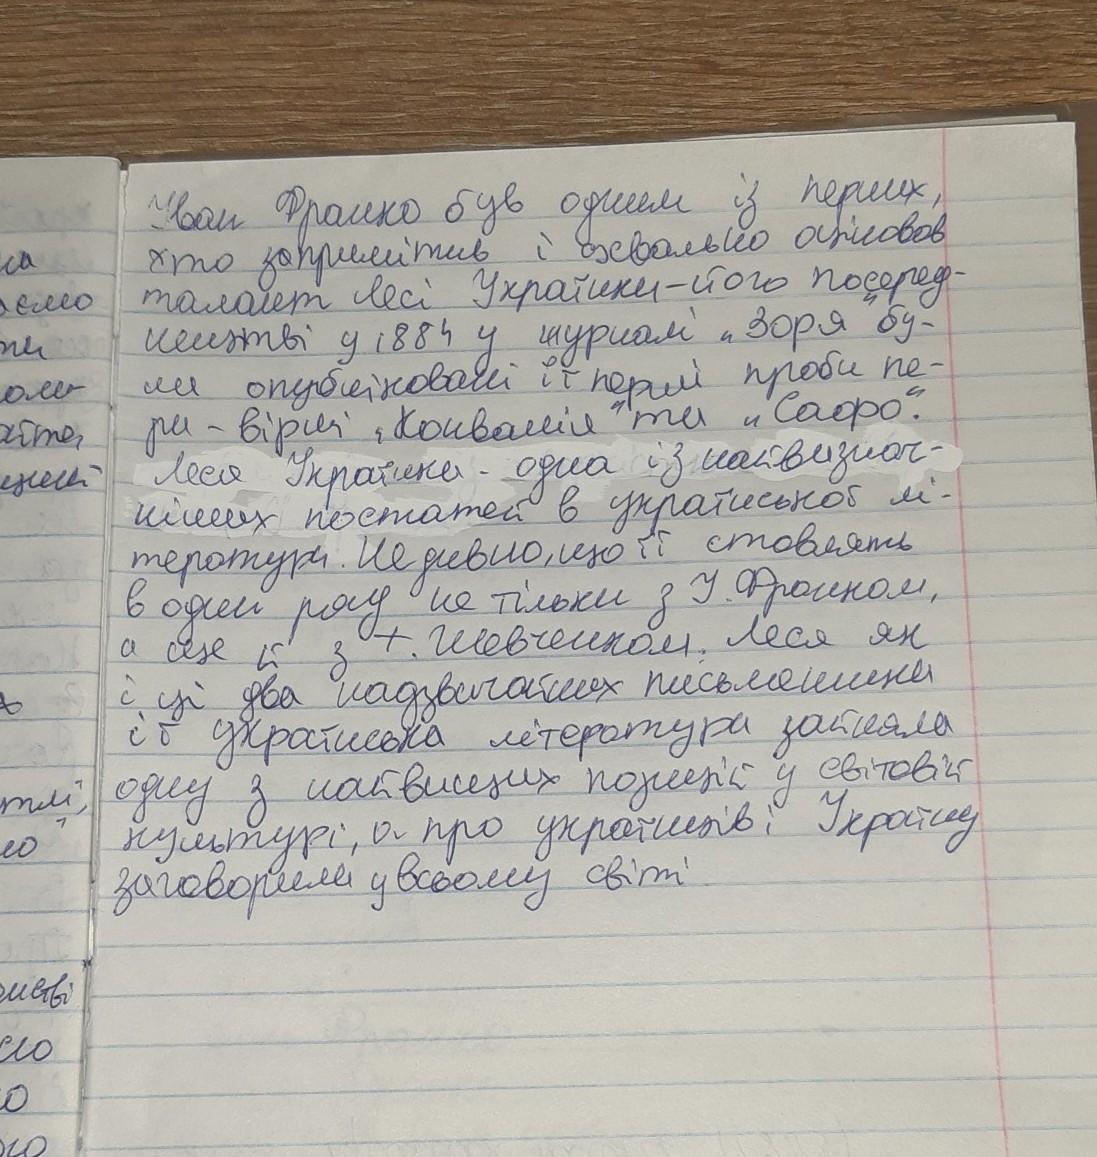 Іван Франко був одним із перших,
хто запримітив і схвально оцінював
талант Лесі Українки-його посеред-
ництві у 1884 у журналі „Зоря" бу-
ли опубліковані її перші проби пе-
ри - вірші „Конвалія" та „Сафо".
Леся Українка - одна із найвизнач-
ніших постатей в української лі-
тератури. Не дивно, що її ставлять
в один ряд не тільки з І. Франком,
а ще й з Т. Шевченком. Леся як
і ці два надзвичайних письменника
і її українська література зайняла
одну з найвищих позицій у світовій
культурі, а про українців і Україну
заговорили у всьому світі